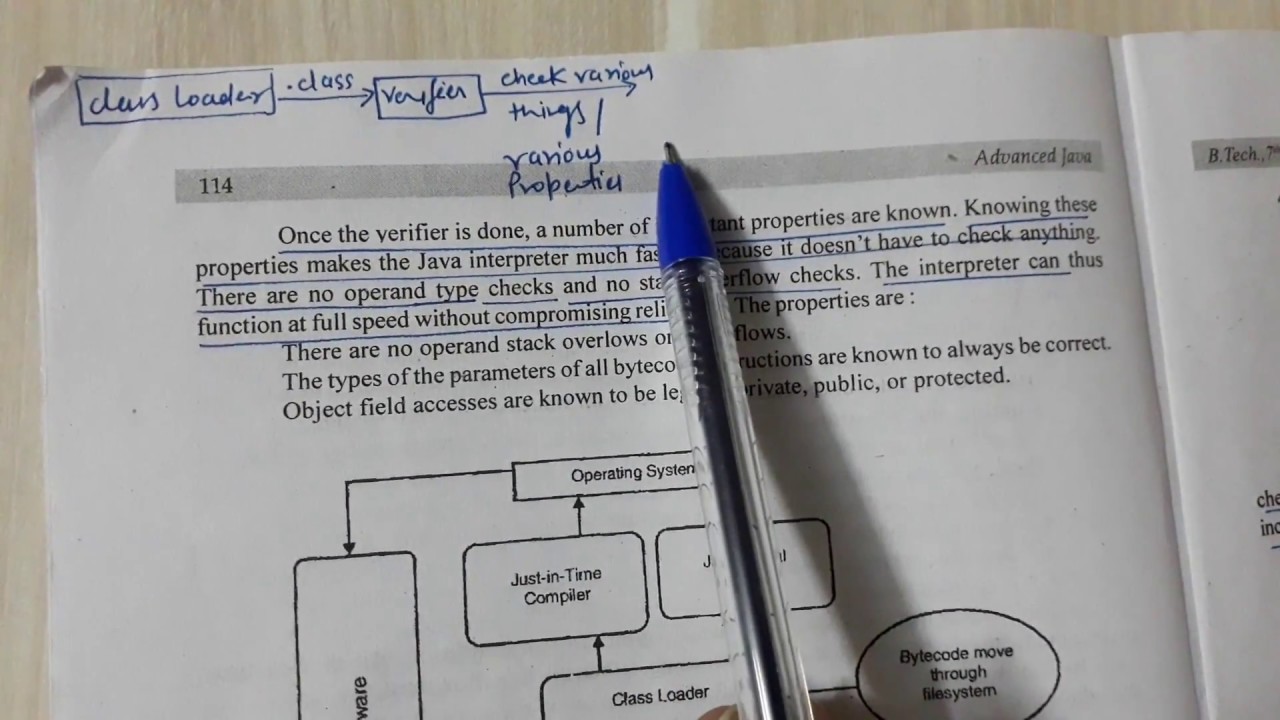 class Loader .class verifier check various
things /
various
Properties
114 Advanced Java
Once the verifier is done, a number of tant properties are known. Knowing these
properties makes the Java interpreter much fas cause it doesn't have to check anything.
There are no operand type checks and no sta erflow checks. The interpreter can thus
function at full speed without compromising reli The properties are :
There are no operand stack overlows or flows.
The types of the parameters of all byteco ructions are known to always be correct.
Object field accesses are known to be le rivate, public, or protected.
Operating System
Just-in-Time
Compiler
J
Class Loader
Bytecode move
through
filesystem
ware
B.Tech.,7
che
inc